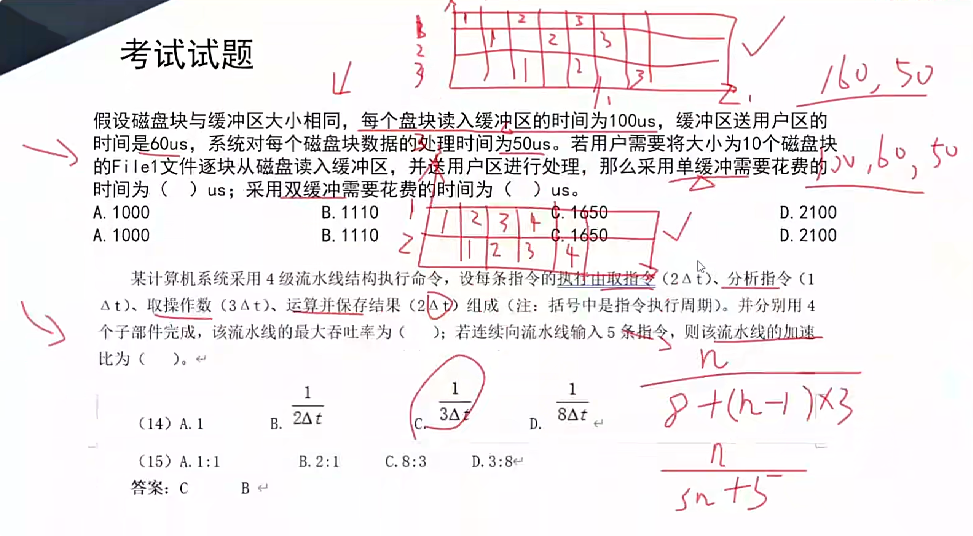 考试试题
1 2 3
1 2 3
1 2 3
1
2
3
160, 50
假设磁盘块与缓冲区大小相同，每个盘块读入缓冲区的时间为100us，缓冲区送用户区的
时间是60us，系统对每个磁盘块数据的处理时间为50us。若用户需要将大小为10个磁盘块
的File1文件逐块从磁盘读入缓冲区，并送用户区进行处理，那么采用单缓冲需要花费的
100,60,50
时间为（ ）us；采用双缓冲需要花费的时间为（ ）us。
A. 1000 B. 1110 C. 1650 D. 2100
A. 1000 B. 1110 C. 1650 D. 2100
1 1 2 3 4
2 1 2 3 4
某计算机系统采用 4 级流水线结构执行命令，设每条指令的执行由取指令（2Δt）、分析指令（1
Δt）、取操作数（3Δt）、运算并保存结果（2Δt）组成（注：括号中是指令执行周期)。并分别用 4
个子部件完成，该流水线的最大吞吐率为（ ）；若连续向流水线输入 5 条指令，则该流水线的加速
比为（ ）。
（14）A. 1 B. 1/2Δt C. 1/3Δt D. 1/8Δt
n
8+(n-1)×3
（15）A. 1:1 B. 2:1 C. 8:3 D. 3:8
n
3n+5
答案： C B